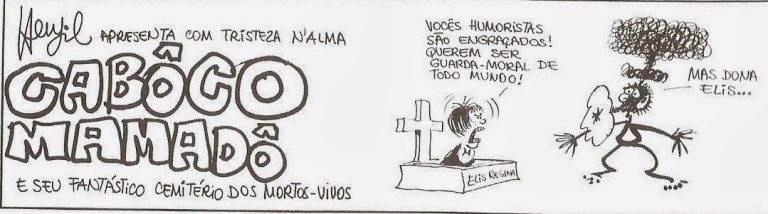 Henfil APRESENTA COM TRISTEZA N'ALMA
CABÔCO
MAMADÔ
E SEU FANTÁSTICO CEMITÉRIO DOS MORTOS-VIVOS
VOCÊS HUMORISTAS
SÃO ENGRAÇADOS!
QUEREM SER
GUARDA-MORAL DE
TODO MUNDO!
ELIS REGINA
MAS DONA
ELIS...